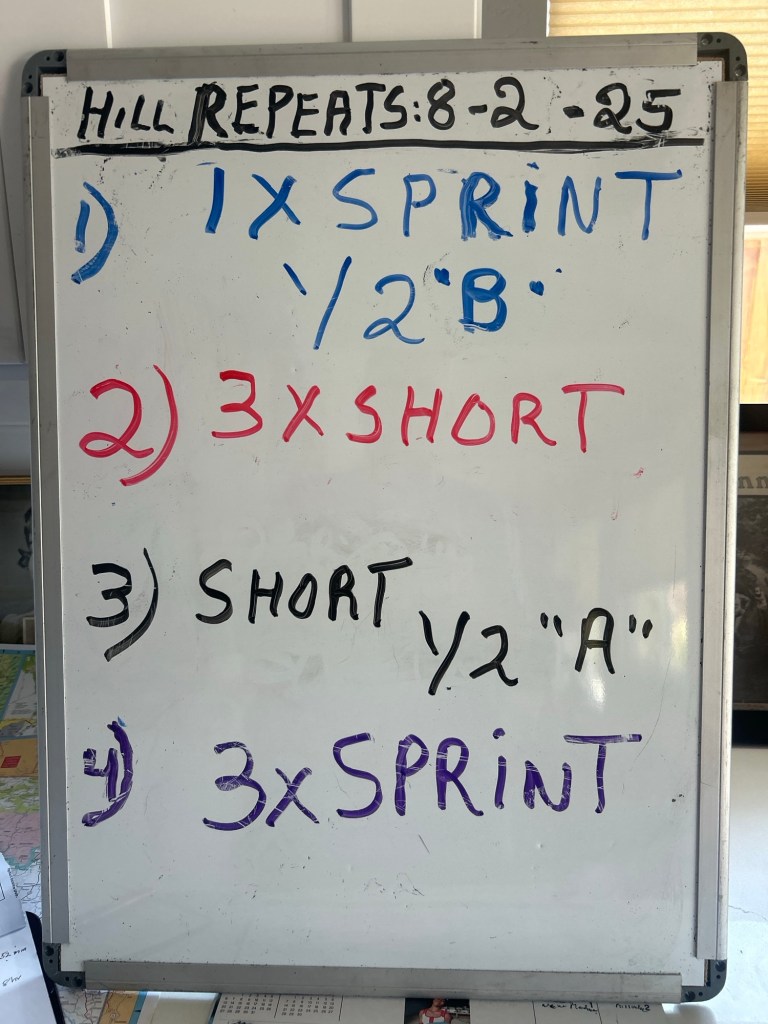 HiLL REPEATS: 8-2-25
1) 1X SPRiNT
1/2 "B"
2) 3X SHORT
3) SHORT
1/2 "A"
4) 3X SPRiNT